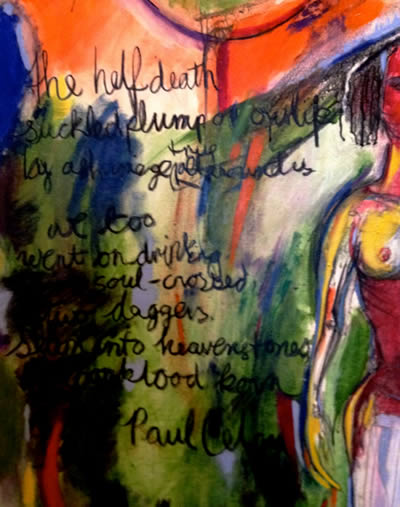 The half death
suckled plump on our life
lay ashimage true all around us
we too
went on drinking
soul-crossed
two daggers.
sewn onto heavenstones
wordblood born
Paul Celan